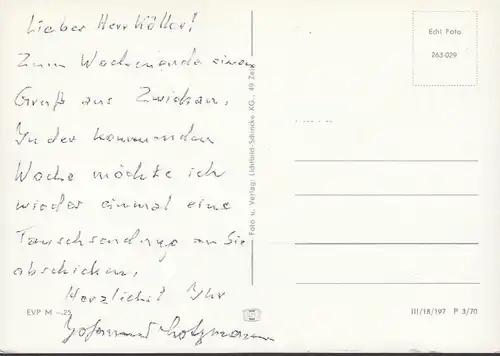 Lieber Herr Köller!
Zum Wochenende einen
Gruß aus Zwickau.
In der kommenden
Woche möchte ich
wieder einmal eine
Tauschsendung an Sie
abschicken.
Herzlichst Ihr
EVP M –.25
Foto u. Verlag: Lichtbild-Schincke KG., 49 Zeitz
Echt Foto
263-029
III/18/197 P 3/70